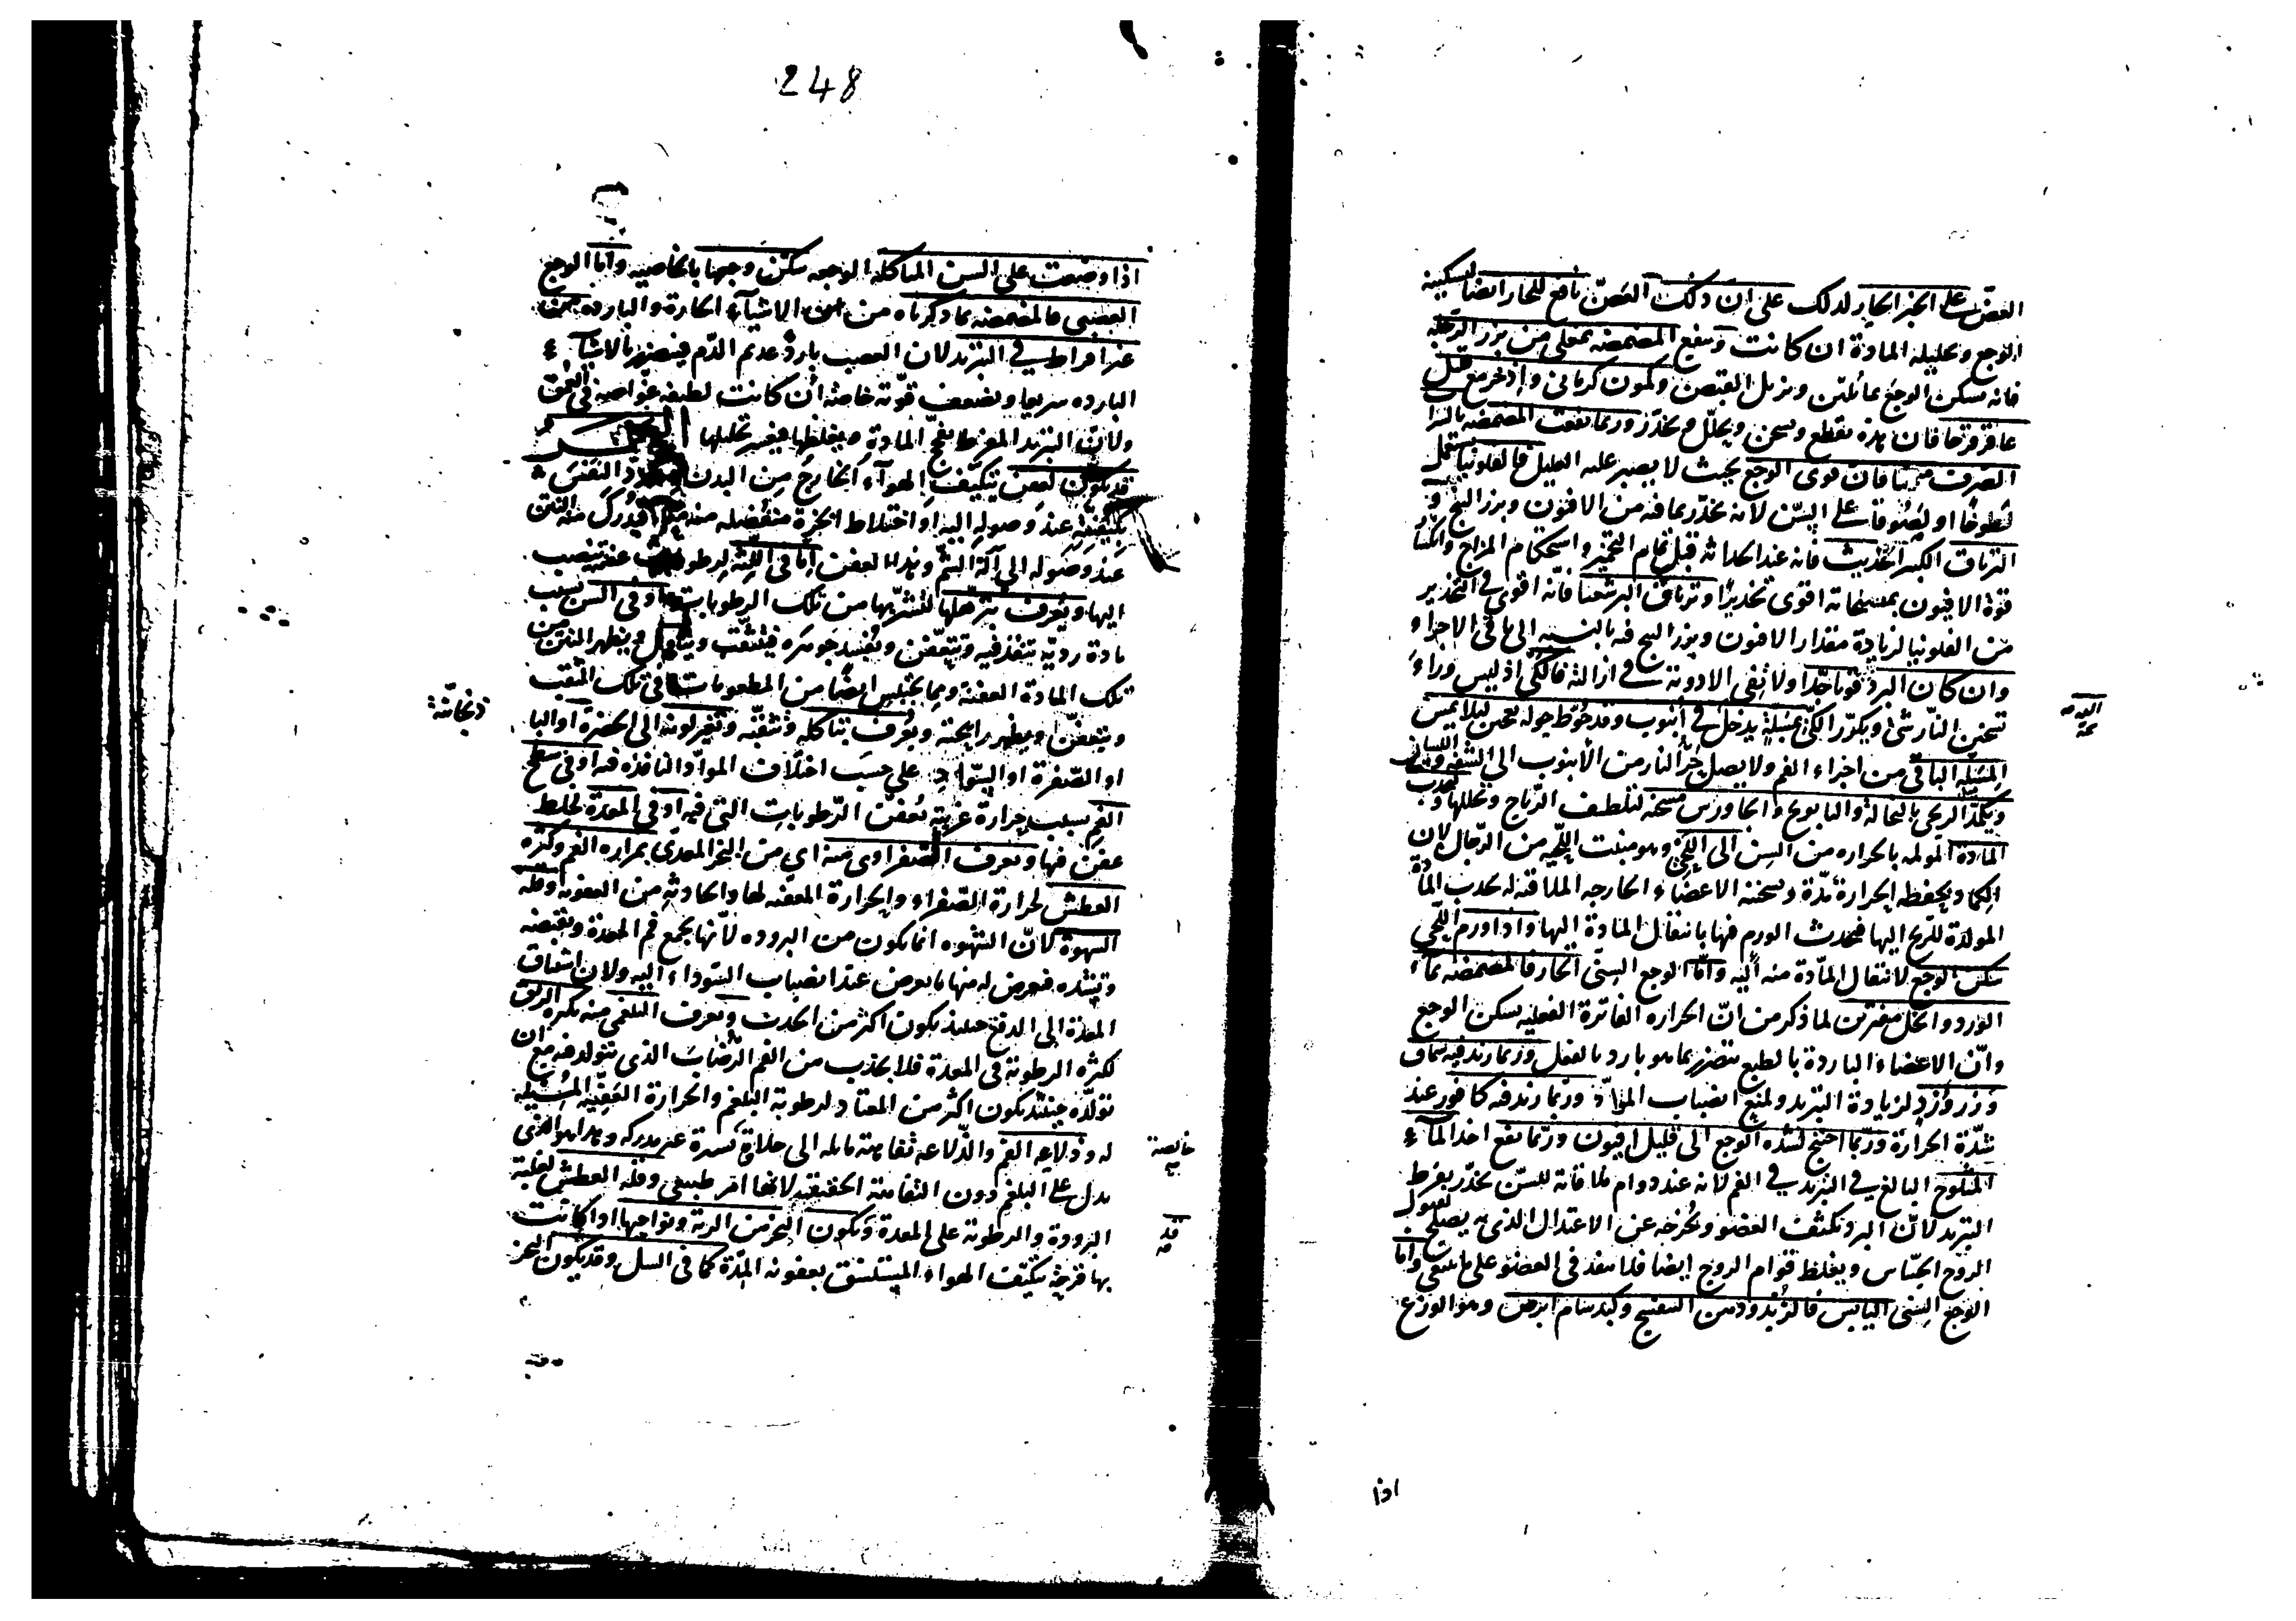 العض على الخبز الحار ولذلك على ان ذلك العضّ نافع للحار ايضا لتسكينه
الوجع وتحليله المادة ان كانت وينفع المضمضه بمغلى من بزر الرجله
فانه يسكن الوجع بما يليّن ويزيل القبض وكمون كرمانى واذخر مع خل
عاقرقرحا فان هذه تقطع وتسخن وتحلّل وتخدّر وربما نفعت المضمضه بالخل
الصرف منها فان قوى الوجع بحيث لا يصبر عليه العليل فالفلونيا
لطوخا او لصوقا على السّن لانه يخدّر بما فيه من الافيون وبزر البنج و
الترياق الكبير الحديث فانه عند الحداثه قبل تمام التخمير واستحكام المزاج وانكسار
قوة الافيون بمسخناته اقوى تخديرا وترياق البرشعثا فانه اقوى فى التخدير
من الفلونيا لزيادة مقدار الافيون وبزر البنج فيه بالنسبه الى باقى الاجزاء
وان كان البرد قويا جدا ولا تفى الادوية فى ازالته فالكى اذ ليس وراء
تسخين النار شئ ويكرّر الكى بمسلة يدخل فى انبوب وقد حُوّط حوله بعجين ليلا يمس
المسلة الباقى من اجزاء الفم ولا يصل حر النار من الانبوب الى الشفه واللسان
ويكمّد اللحى بالنخالة والبابونج والجاورس مسخنه لتلطف الرياح وتحللها وتجذب
المادة المولمه بالحراره من السن الى اللحى وهو منبت اللحيه من الرجال لان
الكماد يحفظه الحرارة مدّة وتسخنه الاعضاء الخارجه الملاقيه له يجذب المادّة
المولدة للريح اليها فيحدث الورم فيها بانتقال المادة اليها واذا ورم اللحى
سكن الوجع لانتقال المادة منه اليه وامّا الوجع السنّى الحار فالمضمضه بماء
الورد والخل مفترين لما ذكر من انّ الحراره الفاترة الفعليه يسكن الوجع
وانّ الاعضاء الباردة بالطبع تتضرر بما هو بارد بالفعل وربما زيد فيه سماق
وزر ورد لزيادة التبريد ولمنع انصباب الموادّ وربما زيد فيه كافور عند
شدّة الحرارة وربّما احتيج لشدة الوجع الى قليل افيون وربّما نفع اخذ الماء
المثلوج البالغ فى التبريد فى الفم لانه عند دوام ملاقاته للسنّ يخدّر بفرط
التبريد لانّ البرد يكثف العضو ويُخرجه عن الاعتدال الذى به يصلح لقبول
الروح الحسّاس ويغلظ قوام الروح ايضا فلا ينفذ فى العضو على ما ينبغى وامّا
الوجع السنى اليابس فالزبد ودهن البنفسج وكبد سام ابرص وهو الوزغ
اذا
248
اذا وضعت على السن المتاكله الوجعه سكن وجعها بالخاصيه وامّا الوجع
العصبى فالمضمضه بما ذكرناه من الاشياء الحارة والبارده من
غير افراط فى التبريد لان العصب بارد عديم الدّم فيتضرر بالاشياء
البارده سريعا ويضعف قوّته خاصة ان كانت لطيفه غوّاصه فى العمق
ولانّ التبريد المفرط يفجّ المادة ويغلظها فيعسر تحليلها البخر
قد يكون لعفن يتكيّف الهواء الخارج من البدن النفَس
بكيفيّته عند وصوله اليه او اختلاط ابخرة منفصله منه فيدرك منه النتن
عند وصوله الى آلة الشم وهذا العفن امّا فى اللثه لرطوبات عفنه تنصب
اليها ويُعرف بترهّلها لتشرّبها من تلك الرطوبات او فى السن بسبب
مادة رديّه تنفذ فيه وتتعفّن وتُفسد جوهره فيتثقب ويتأكل ويظهر المنتن من
تلك المادة العفنه ومما يحتبس ايضا من المطعومات فى تلك الثقب
ويتعفّن ويظهر رايحته ويُعرف بتاكله وتثقّبه وتغير لونه الى الخضرة او
او الصّفرة او السّواد على حسب اختلاف الموادّ النافذه فيه او فى سطح
الفم بسبب حرارة غريبة تُعفّن الرّطوبات التى فيه او فى المعدة لخلط
عفن فيها ويعرف الصفراوى منه اى من البخر المعدى بمراره الفم وكثره
العطش لحرارة الصّفراء والحرارة المعفنه لها والحادثه من العفونه وقله
الشهوة لانّ الشهوه انما يكون من البروده لانّها يجمع فم المعدة ويقبضه
وتشدّه فيعرض له منها ما يعرض عند انصباب السوداء اليه ولان اشتياق
المعدة الى الدفع حينئذ يكون اكثر من الجذب ويعرف البلغمى منه بكثره الريق
لكثره الرطوبة فى المعدة فلا يجذب من الفم الرضاب الذى يتولد فيه مع ان
تولّده حينئذ يكون اكثر من المعتاد لرطوبة البلغم والحرارة العفنيّه المُسيله
له ودلاعه الفم والدّلاعه تفاهة مايله الى حلاوة يسيرة غير مدركه وهذا هو الذى
يدل على البلغم دون التفاهة الحقيقيه لانها امر طبيعى وقله العطش لغلبة
البرودة والرطوبة على المعدة ويكون البخر من الرية ونواحيها اذا كانت
بها قرحة يتكيّف الهواء المستنشق بعفونه المِدّة كما فى السل وقد يكون البخر
خالصة
قد